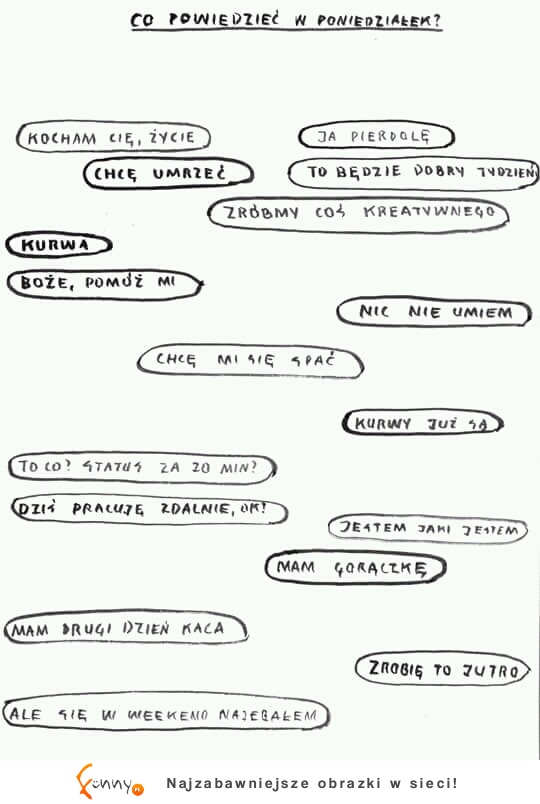 CO POWIEDZIEĆ W PONIEDZIAŁEK?
KOCHAM CIĘ, ŻYCIE
JA PIERDOLĘ
CHCĘ UMRZEĆ
TO BĘDZIE DOBRY TYDZIEŃ
ZRÓBMY COŚ KREATYWNEGO
KURWA
BOŻE, POMÓŻ MI
NIC NIE UMIEM
CHCĘ MI SIĘ SPAĆ
KURWY JUŻ SĄ
TO CO? STATUS ZA 20 MIN?
DZIŚ PRACUJĘ ZDALNIE, OK?
JESTEM JAKI JESTEM
MAM GORĄCZKĘ
MAM DRUGI DZIEŃ KACA
ZROBIĘ TO JUTRO
ALE SIĘ W WEEKEND NAJEBAŁEM
Funny.PL
Najzabawniejsze obrazki w sieci!